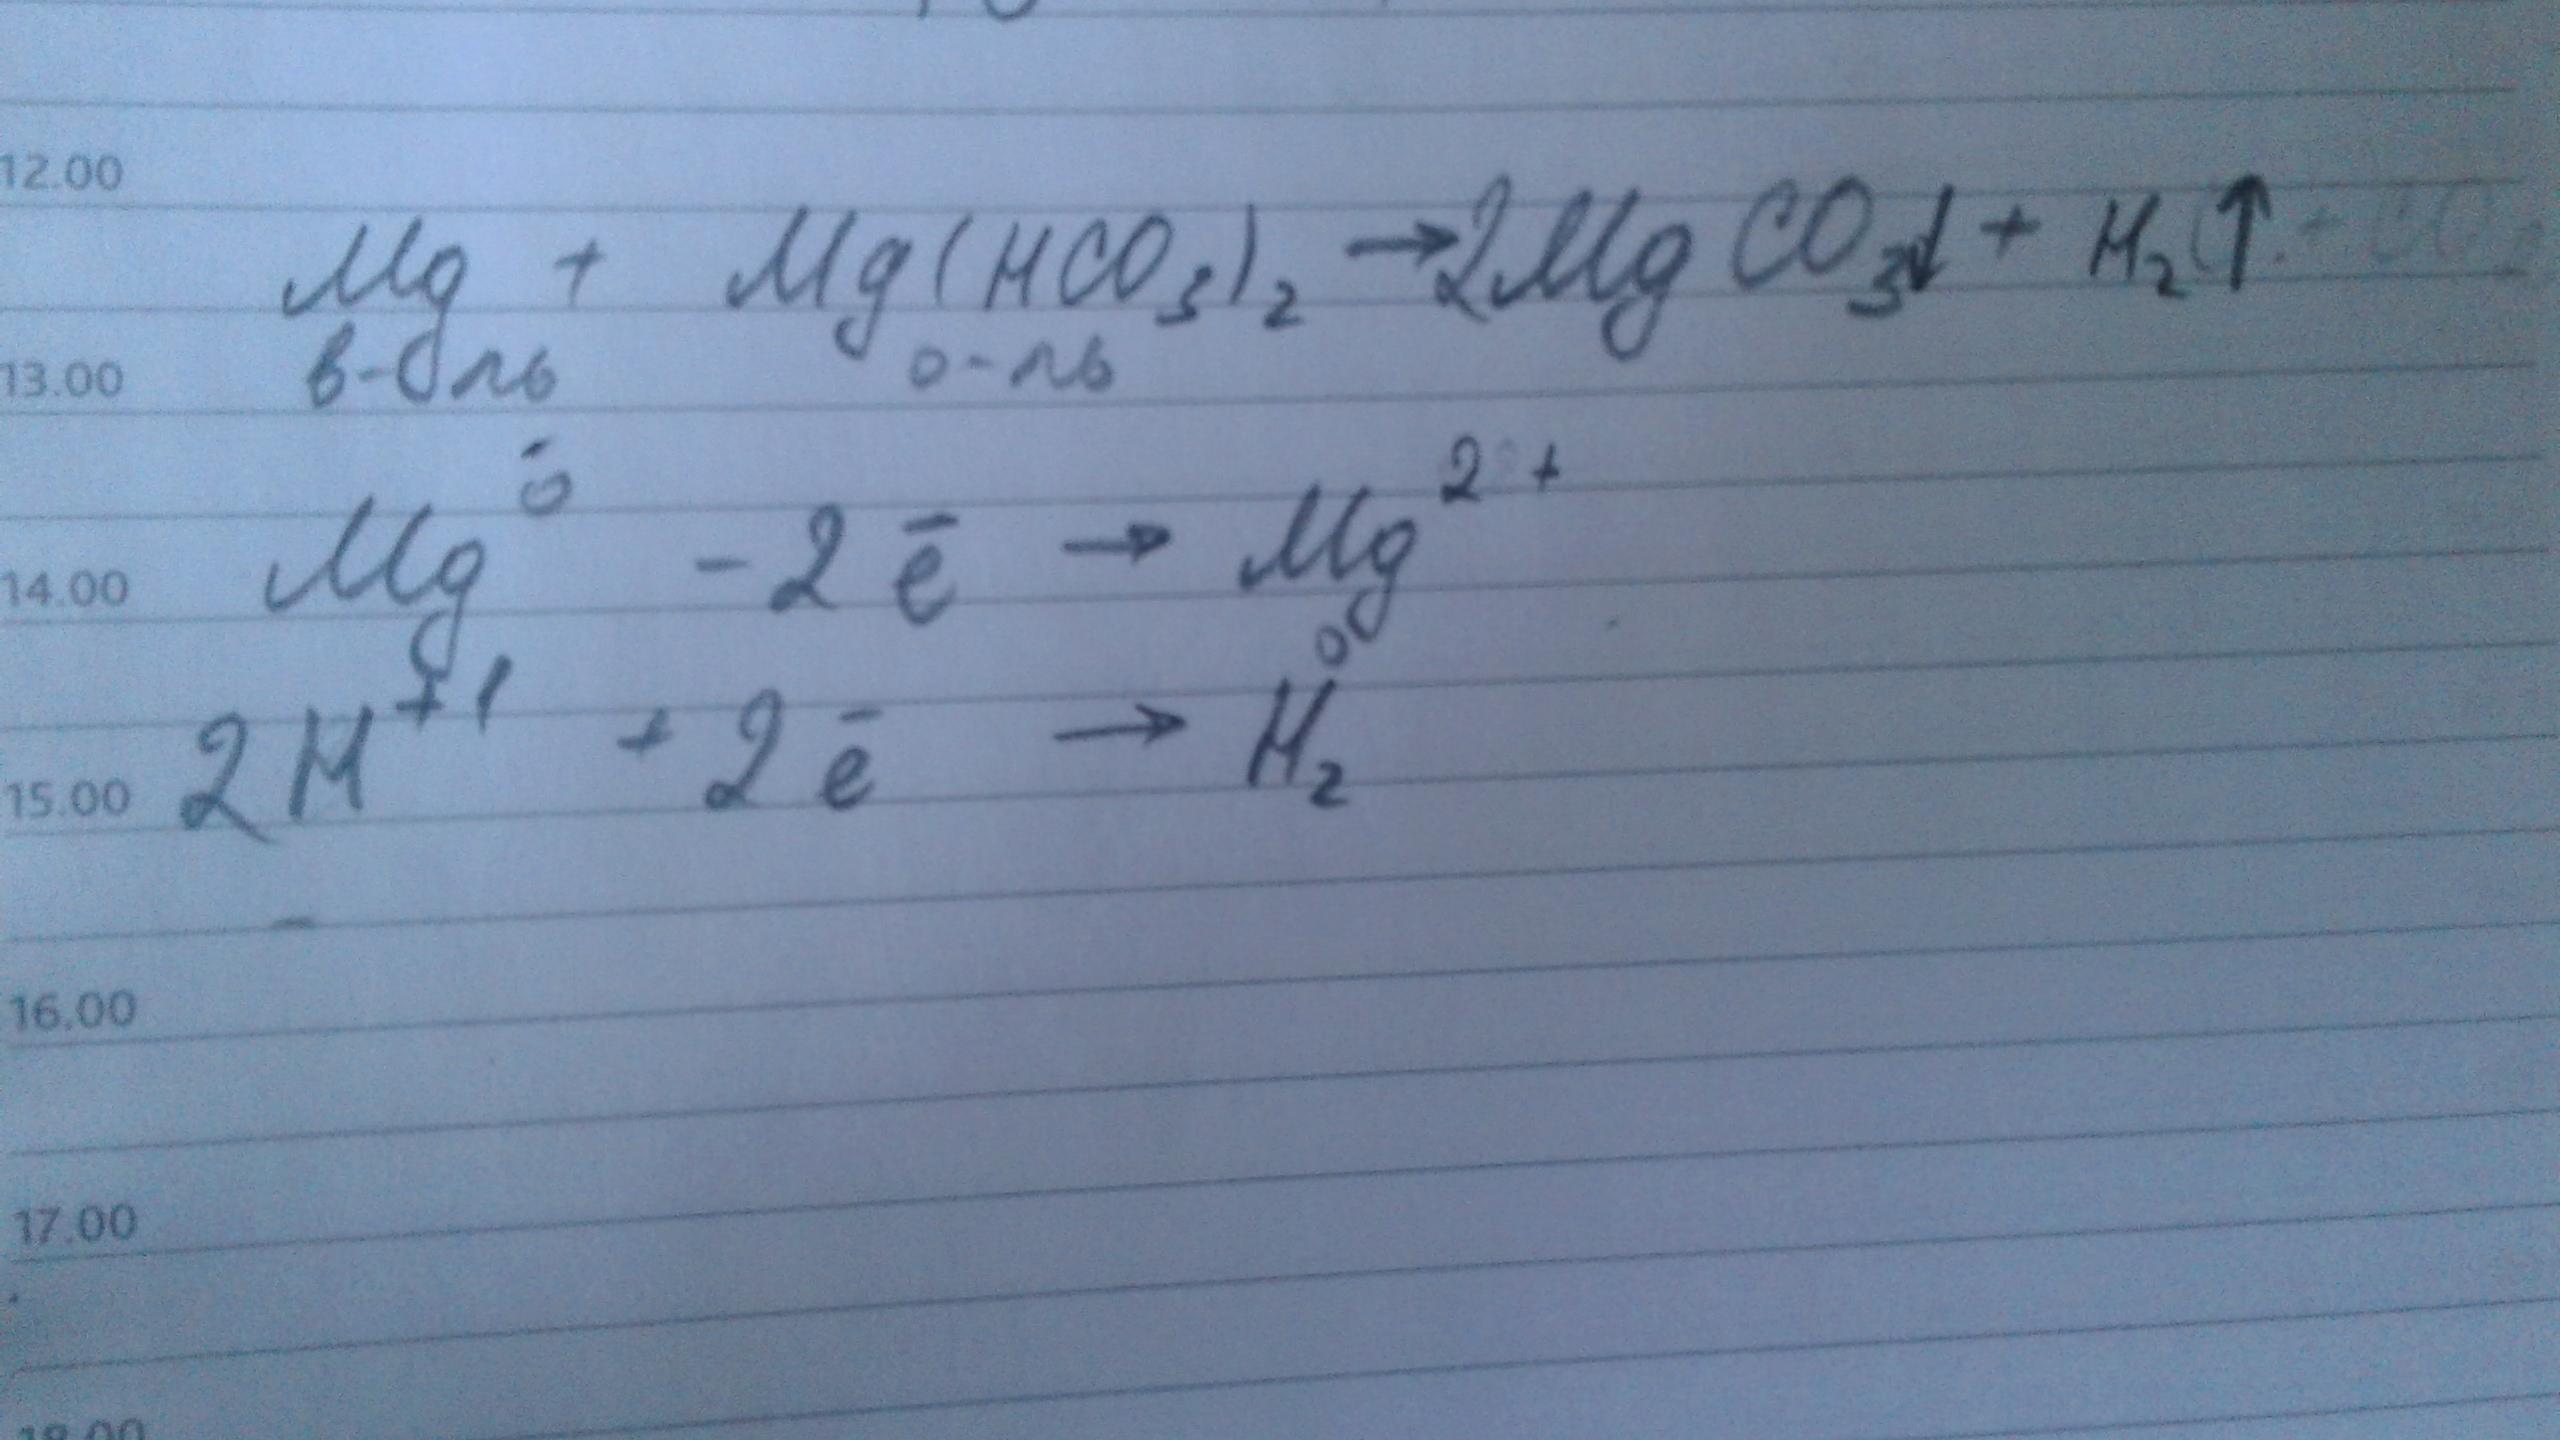 12.00
Mg + Mg(HCO₃)₂ → 2MgCO₃↓ + H₂↑
13.00 в-ль о-ль
Mg⁰ - 2ē → Mg²⁺
14.00
2H⁺¹ + 2ē → H₂⁰
15.00
16.00
17.00
18.00